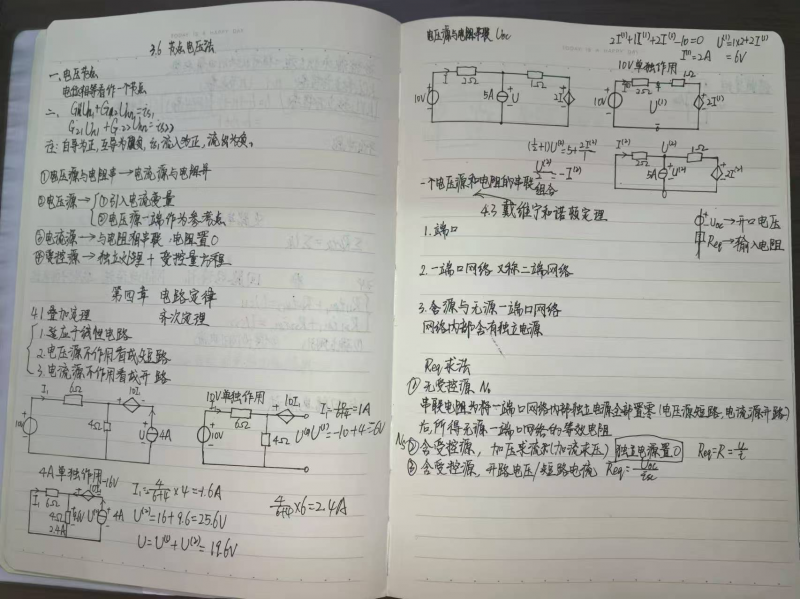 3.6 节点电压法
一、电压节点
电位相等看作一个节点
二、G11Un1+G12Un2=is11
G21Un1+G22Un2=is22
注:自导为正,互导为负, is流入为正,流出为负。
①电压源与电阻串→电流源与电阻并
②电压源→{①引入电流变量
②电压源一端作为参考点
③电流源→与电阻相串联,电阻置0
④受控源→独立处理+受控量方程
第四章 电路定律
4.1叠加定理 齐次定理
1.适应于线性电路
2.电压源不作用看成短路
3.电流源不作用看成开路
I1 6Ω 10I1
10V 4Ω U 4A
10V单独作用
I1 6Ω 10I1
10V 4Ω U(1)
I1=10/6+4=1A
U(1)=-10+4=-6V
4A单独作用
I1 6Ω 10I1 -16V
4Ω 2.4A 9.6V U(2) 4A
I1=-4/6+4×4=-1.6A
U(2)=16+9.6=25.6V
U=U(1)+U(2)=19.6V
4/6+4×6=2.4A
电压源与电阻串联 Uoc
2I(1)+1I(1)+2I(1)-10=0 U(1)=1×2+2I(1)
I(1)=2A =6V
10V单独作用
I 2Ω 1Ω
10V 5A U 2I
2Ω 1Ω
10V U(1) 2I(1)
(1/2+1)U(2)=5+2I(2)/1
U(2)/2=-I(2)
I(2) 2Ω U(2) 1Ω
5A U(2) 2I(2)
一个电压源和电阻的串联组合
4.3 戴维宁和诺顿定理
1.端口
Uoc→开口电压
Req→输入电阻
2.一端口网络 又称二端网络
3.含源与无源一端口网络
网络内部含有独立电源
Req求法
①无受控源 No
串联电阻为将一端口网络内部独立电源全部置零(电压源短路,电流源开路)
后,所得无源一端口网络的等效电阻
Ns②含受控源,加压求流法(加流求压) 独立电源置0 Req=R=u/i
③含受控源,开路电压/短路电流 Req=Uoc/isc